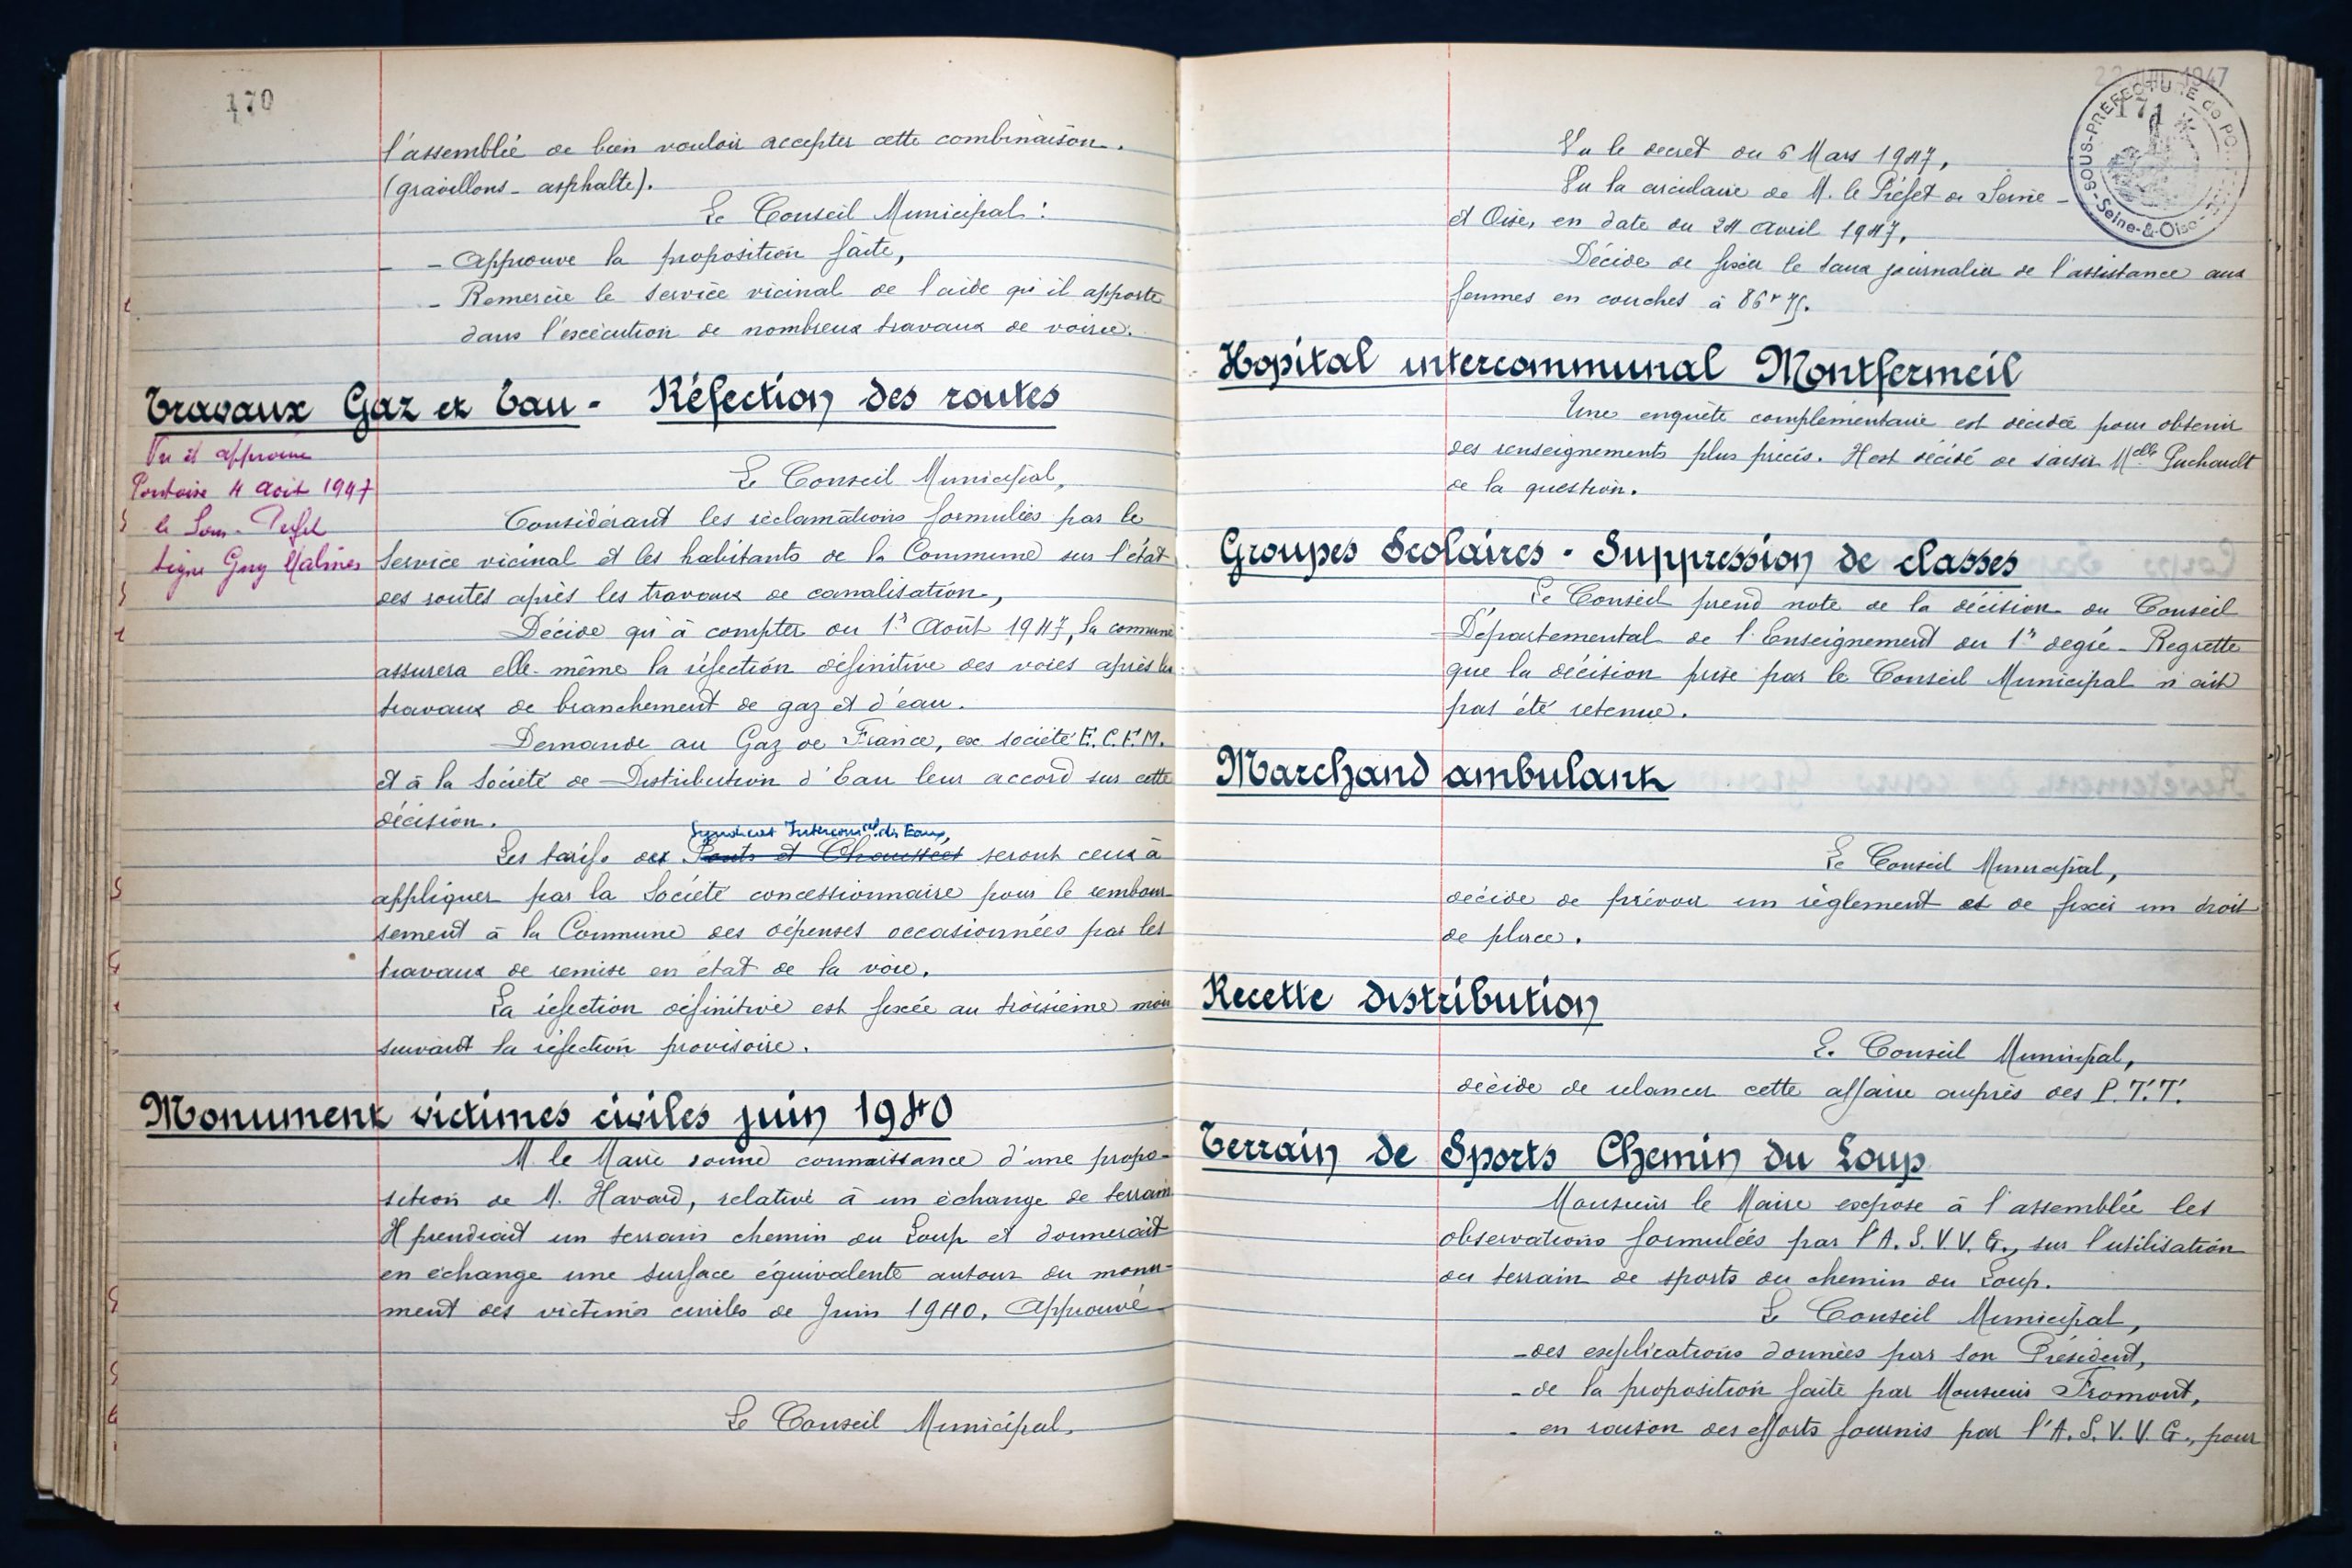 170
l'assemblée de bien vouloir accepter cette combinaison.
(gravillons - asphalte).
Le Conseil Municipal :
- - Approuve la proposition faite,
- Remercie le service vicinal de l'aide qu'il apporte
dans l'exécution de nombreux travaux de voirie.
Travaux Gaz et Eau - Réfection des routes
Vu et approuvé
Pontoise 4 Août 1947
le Sous-Préfet
signé Guy Malines
Le Conseil Municipal,
Considérant les réclamations formulées par le
Service vicinal et les habitants de la Commune sur l'état
des routes après les travaux de canalisation,
Décide qu'à compter du 1er Août 1947, la commune
assurera elle-même la réfection définitive des voies après les
travaux de branchement de gaz et d'eau.
Demande au Gaz de France, ex société E.C.F.M.
et à la Société de Distribution d'Eau leur accord sur cette
décision.
Syndicat Intercomal des Eaux,
Les tarifs des Ponts et Chaussées seront ceux à
appliquer par la Société concessionnaire pour le rembour-
sement à la Commune des dépenses occasionnées par les
travaux de remise en état de la voie.
La réfection définitive est fixée au troisième mois
suivant la réfection provisoire.
Monument victimes civiles juin 1940
M. le Maire donne connaissance d'une propo-
sition de M. Havard, relative à un échange de terrain
Il prendrait un terrain chemin du Loup et donnerait
en échange une surface équivalente autour du monu-
ment des victimes civiles de Juin 1940. Approuvé
Le Conseil Municipal,
22 JUIL 1947
171
SOUS-PRÉFECTURE de PO
Seine-&-Oise
Vu le décret du 6 Mars 1947,
Vu la circulaire de M. le Préfet de Seine-
et Oise, en date du 24 avril 1947,
Décide de fixer le taux journalier de l'assistance aux
femmes en couches à 86r 75.
Hopital intercommunal Montfermeil
Une enquête complémentaire est décidée pour obtenir
des renseignements plus précis. Il est décidé de saisir Melle Puchoult
de la question.
Groupes Scolaires - Suppression de classes
Le Conseil prend note de la décision du Conseil
Départemental de l'Enseignement du 1er degré - Regrette
que la décision prise par le Conseil Municipal n'ait
pas été retenue.
Marchand ambulant
Le Conseil Municipal,
décide de prévoir un règlement et de fixer un droit
de place.
Recette distribution
Le Conseil Municipal,
décide de relancer cette affaire auprès des P.T.T.
Terrain de Sports Chemin du Loup
Monsieur le Maire expose à l'assemblée les
observations formulées par l'A.S.V.V.G., sur l'utilisation
du terrain de sports du chemin du Loup.
Le Conseil Municipal,
- des explications données par son Président,
- de la proposition faite par Monsieur Fromont,
- en raison des efforts fournis par l'A.S.V.V.G., pour